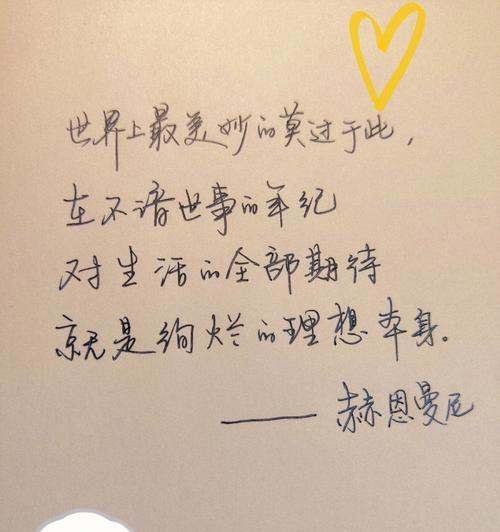 世界上最美妙的莫过于此，
在不谙世事的年纪
对生活的全部期待
就是绚烂的理想本身。
——赫恩曼尼